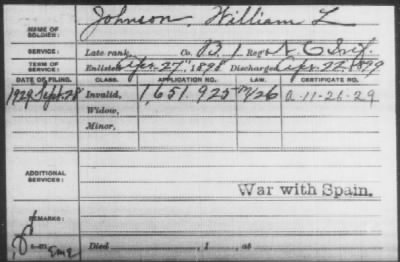 NAME OF SOLDIER: Johnson, William L
SERVICE: Late rank, Co. B. 1 Reg't N. C. Inf.
TERM OF SERVICE: Enlisted Apr. 27", 1898 Discharged Apr. 22, 1899
DATE OF FILING. CLASS. APPLICATION NO. LAW. CERTIFICATE NO.
1929 Sept. 28 Invalid, 1,651,925 a-11-26-29
Widow,
Minor,
ADDITIONAL SERVICES:
War with Spain.
REMARKS:
Died , 1 , at